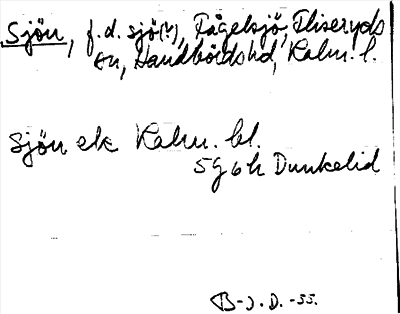 Sjön, f.d. sjö(?), Fågelsjö, Fliseryds
sn, Handbörds hd, Kalm. l.
Sjön ek Kalm. bl.
5 G 6 h Dunkelid
B-J.D.-55.